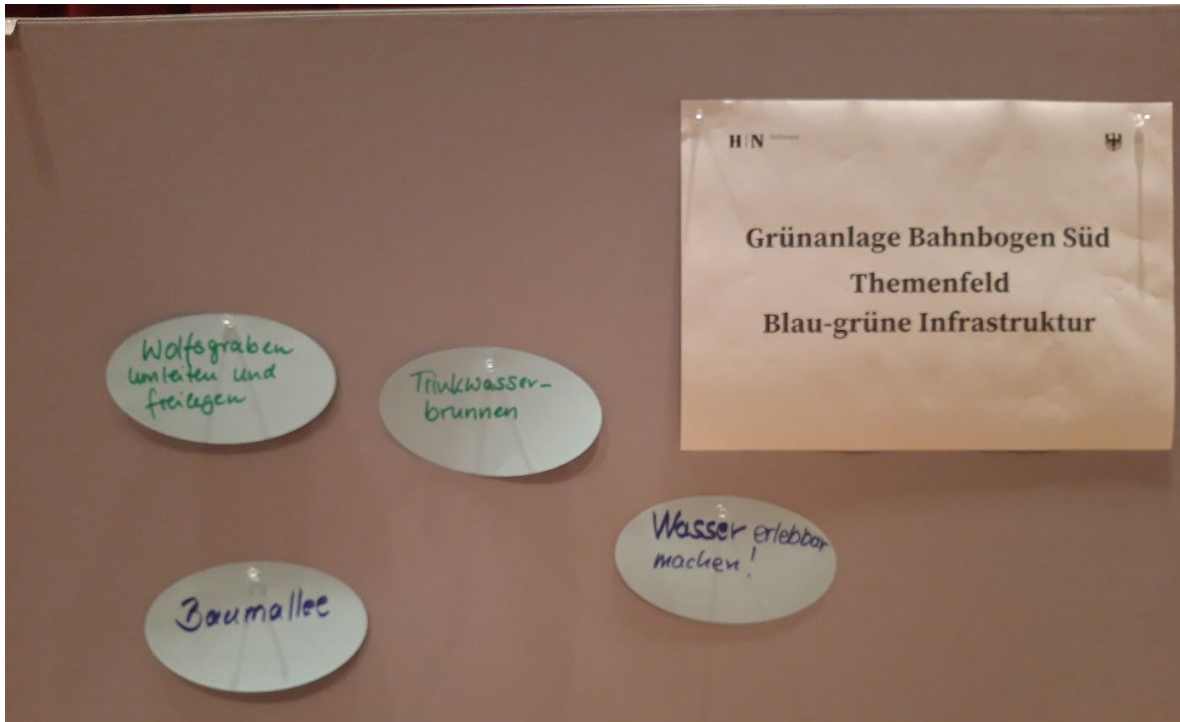 H|N
Grünanlage Bahnbogen Süd
Themenfeld
Blau-grüne Infrastruktur
Wolfsgraben
umleiten und
freilegen
Trinkwasser-
brunnen
Wasser erlebbar
machen!
Baumallee